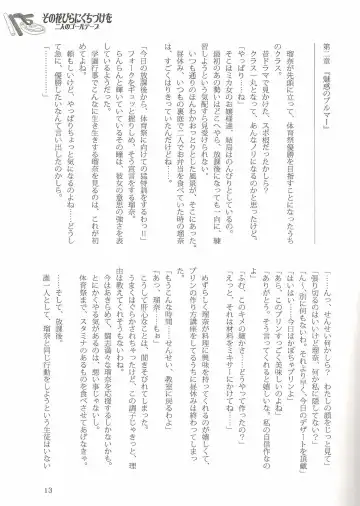 その花びらにくちづけを
二人のゴールテープ
第二章　『魅惑のブルマー』
　瑠奈が先頭に立って、体育祭優勝を目指すことになったうち
のクラス。
　昔ドラマで見かけた、スポ根だったかしら？
　クラス一丸となって、あんなノリになるのかと思ったけど。
　「やっぱり……ね」
　そこはミカ女のお嬢様達、結局はのんびりとしているの。
　最初のあの勢いはどこへやら、放課後になっても一向に練
習しようという気配すら見受けられないの。
　いつも通りのほんわかおっとりとした風景が、そこにあった。
　昼休み、いつもの裏庭で二人でお弁当を食べていた時の瑠奈
は、気合いが入っていたんだけどね……。
　「今日の放課後から、体育祭に向けての猛特訓をするわっ‼」
　フォークをギュッと握りしめ、そう宣言をする瑠奈。
　らんらんと輝いているその瞳は、彼女の意思の強さを表
しているようだった。
　学園行事でこんなに生き生きする瑠奈を見るのは、これが初
めてよね。
　頼もしいけど、やっぱりちょっと気になるのよね……どうし
て急に、優勝したいなんて言い出したのかしら。
　「……っ、せんせい何かしら？　わたしの顔をじっと見て」
　「張り切るのはいいけど瑠奈、何か私に隠してない？」
　「ん～、別に何もないわ。それより早く、今日のデザートを頂戴」
　「はいはい……今日はかぼちゃプリンよ」
　「あら、このプリンすっごく美味しいのよね」
　「ありがとう、そう言ってくれると嬉しいな。私の自信作なの
よ」
　「ふむ、このキメの細かさ……どうやって作ったの？」
　「えっと、それは材料をミキサーにかけてね……」
　めずらしく瑠奈が料理に興味を持ってくれるのが嬉しくて、
プリンの作り方講座をしてるうちに昼休みは終わってしまっ
て。
　「もうこんな時間……せんせい、教室に戻るわよ」
　「あっ、瑠奈……もぉ」
　こうして肝心なとこは、聞きそびれてしまった。
　うまくはぐらかされちゃったけど、この調子じゃきっと、理
由は教えてくれそうもないわね。
　今はあきらめて、闘志満々な瑠奈を応援するしかないかも。
　とにかくやる気があるのは、悪い事じゃないし。
　体育祭まで、スタミナのあるものを食べさせてあげなきゃ。
　……そして、放課後。
　誰一人として、瑠奈と同じ行動をしようという生徒はいない
13